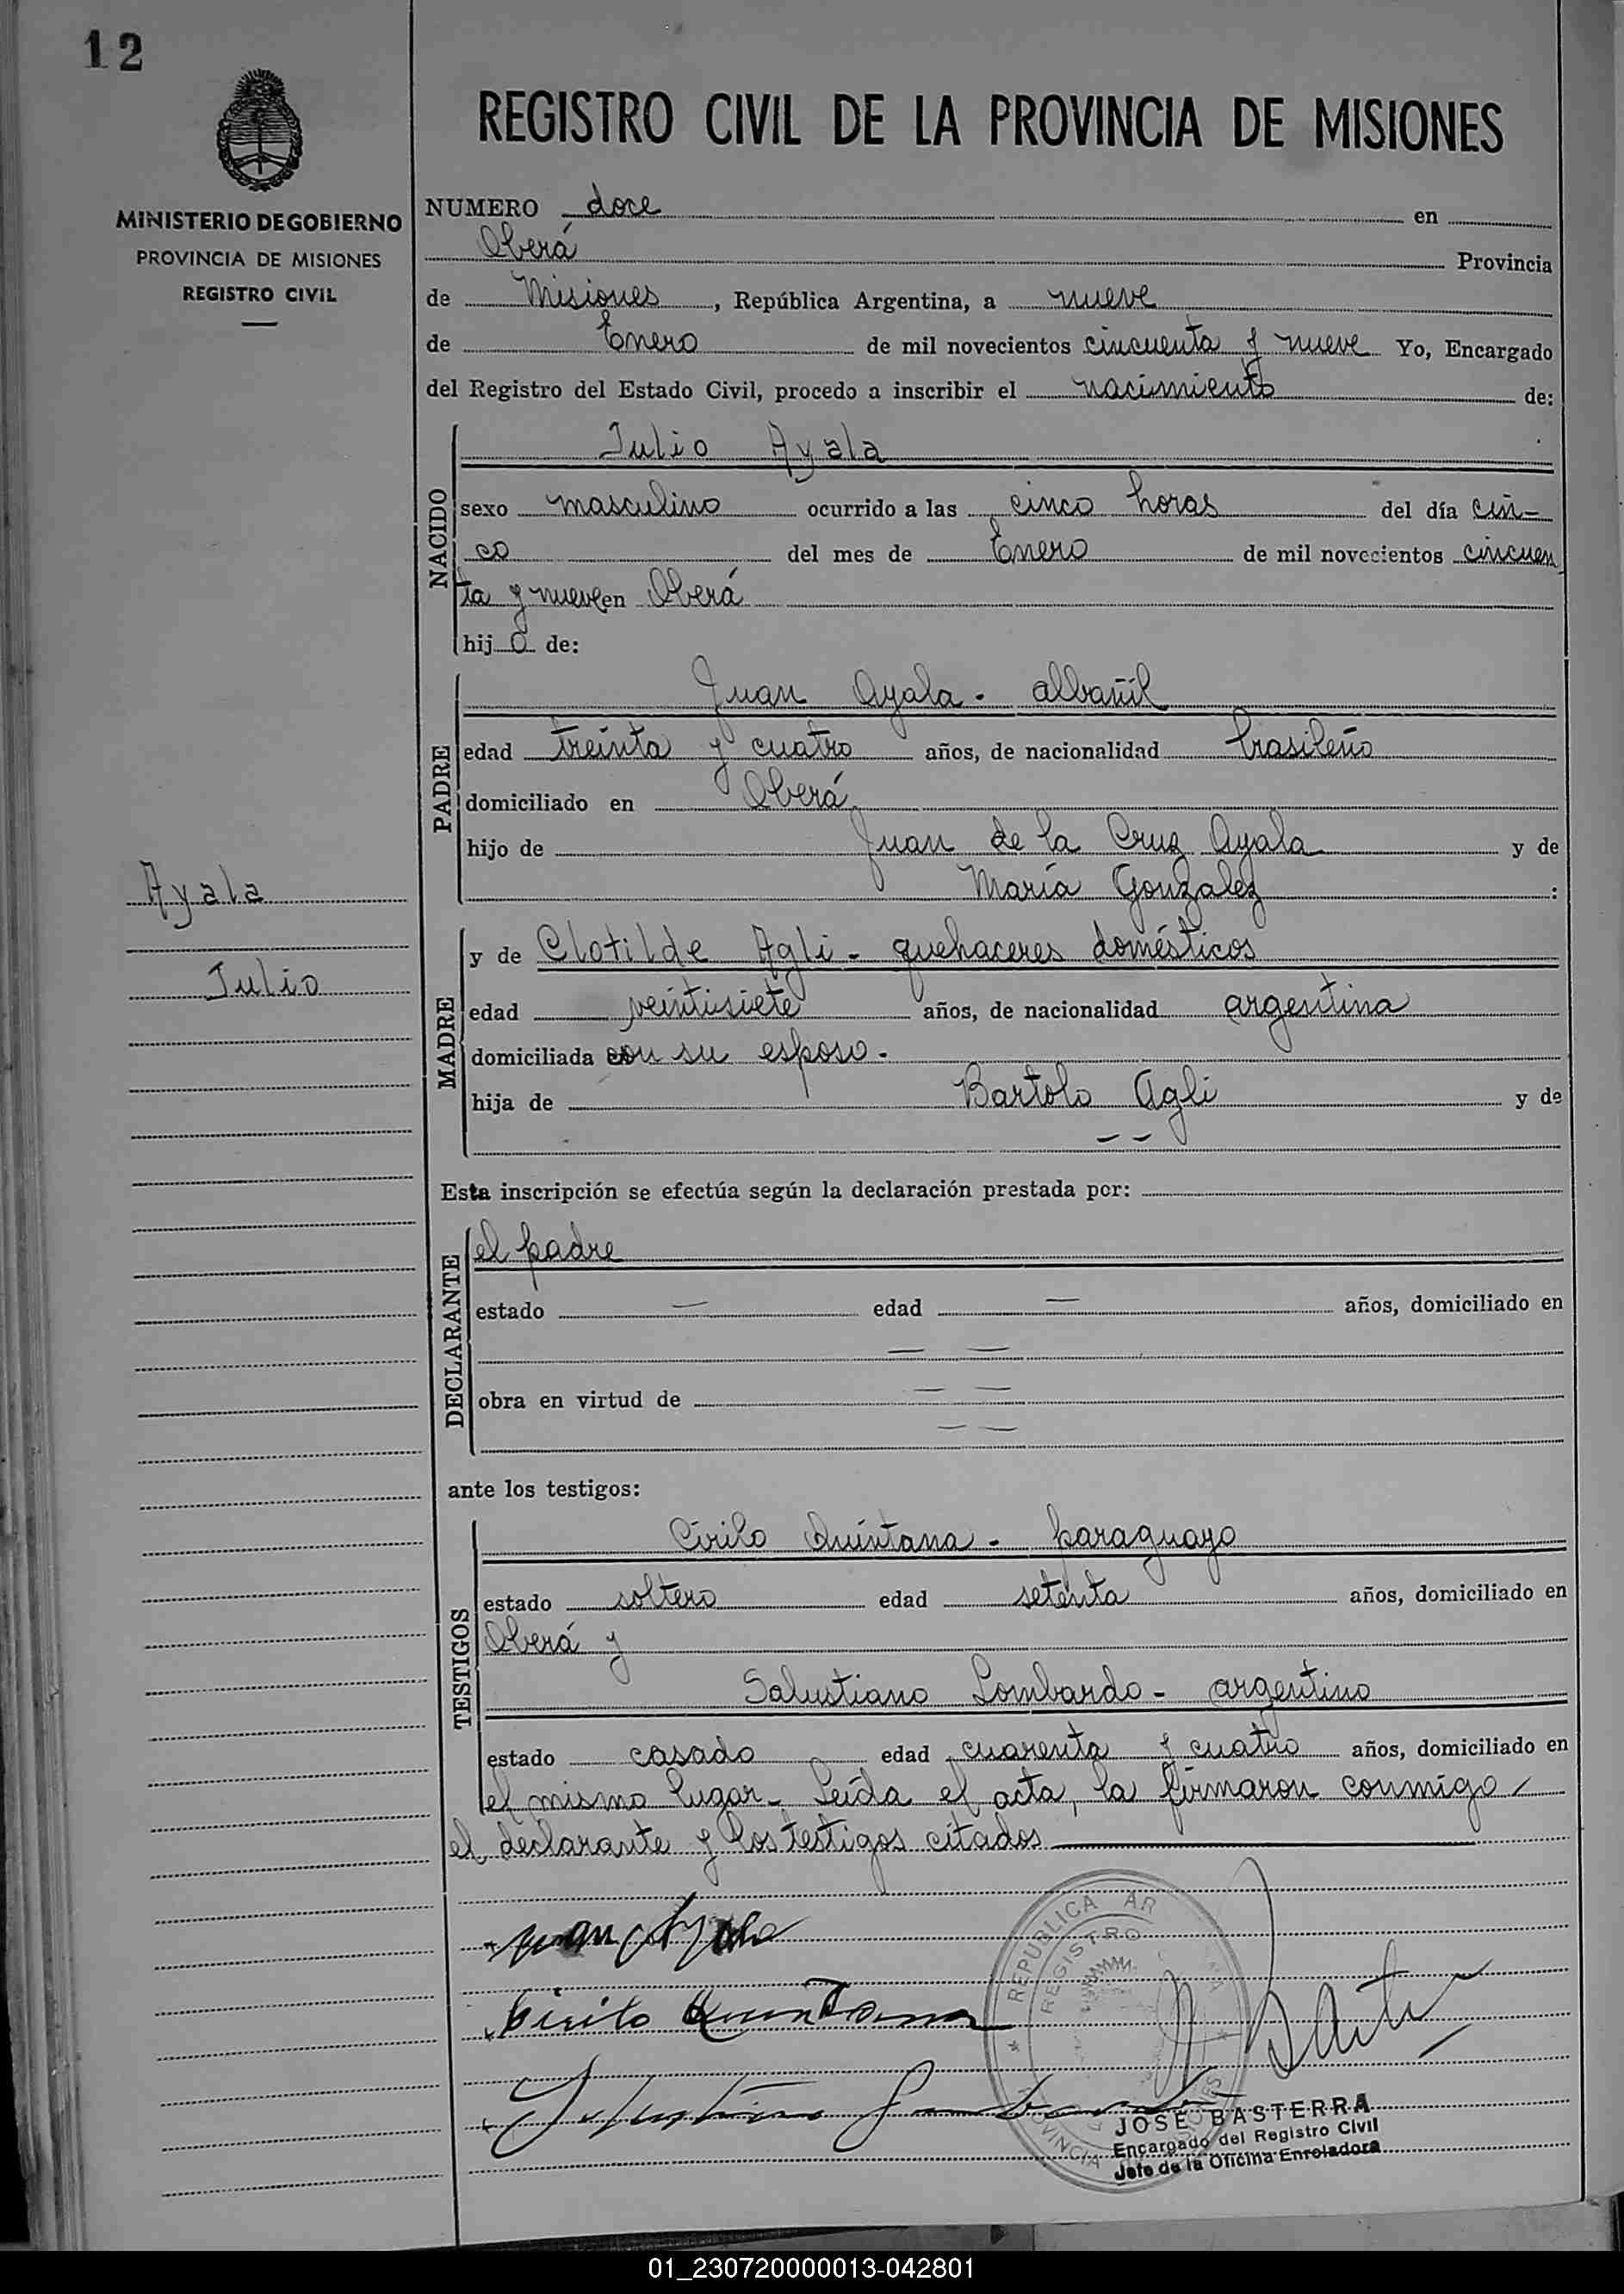 12
MINISTERIO DE GOBIERNO
PROVINCIA DE MISIONES
REGISTRO CIVIL
Ayala
Julio
REGISTRO CIVIL DE LA PROVINCIA DE MISIONES
NUMERO doce en
Oberá Provincia
de Misiones, República Argentina, a nueve
de Enero de mil novecientos cincuenta y nueve Yo, Encargado
del Registro del Estado Civil, procedo a inscribir el nacimiento de:
NACIDO
Julio Ayala
sexo masculino ocurrido a las cinco horas del día cin-
co del mes de Enero de mil novecientos cincuen
ta y nueve en Oberá
hijo de:
PADRE
Juan Ayala - albañil
edad treinta y cuatro años, de nacionalidad brasileño
domiciliado en Oberá
hijo de Juan de la Cruz Ayala y de
María Gonzalez :
MADRE
y de Clotilde Agli - quehaceres domésticos
edad veintisiete años, de nacionalidad argentina
domiciliada con su esposo -
hija de Bartolo Agli y de
— —
Esta inscripción se efectúa según la declaración prestada por:
DECLARANTE
el padre
estado — edad — años, domiciliado en
— —
obra en virtud de — —
— —
ante los testigos:
TESTIGOS
Cirilo Quintana - paraguayo
estado soltero edad setenta años, domiciliado en
Oberá y
Salustiano Lombardo - argentino
estado casado edad cuarenta y cuatro años, domiciliado en
el mismo lugar - Leída el acta, la firmaron conmigo
el declarante y los testigos citados
Juan Ayala
Cirilo Quintana
Salustiano Lombardo
REPUBLICA AR
REGISTRO
JOSE BASTERRA
Encargado del Registro Civil
Jefe de la Oficina Enroladora
01_230720000013-042801